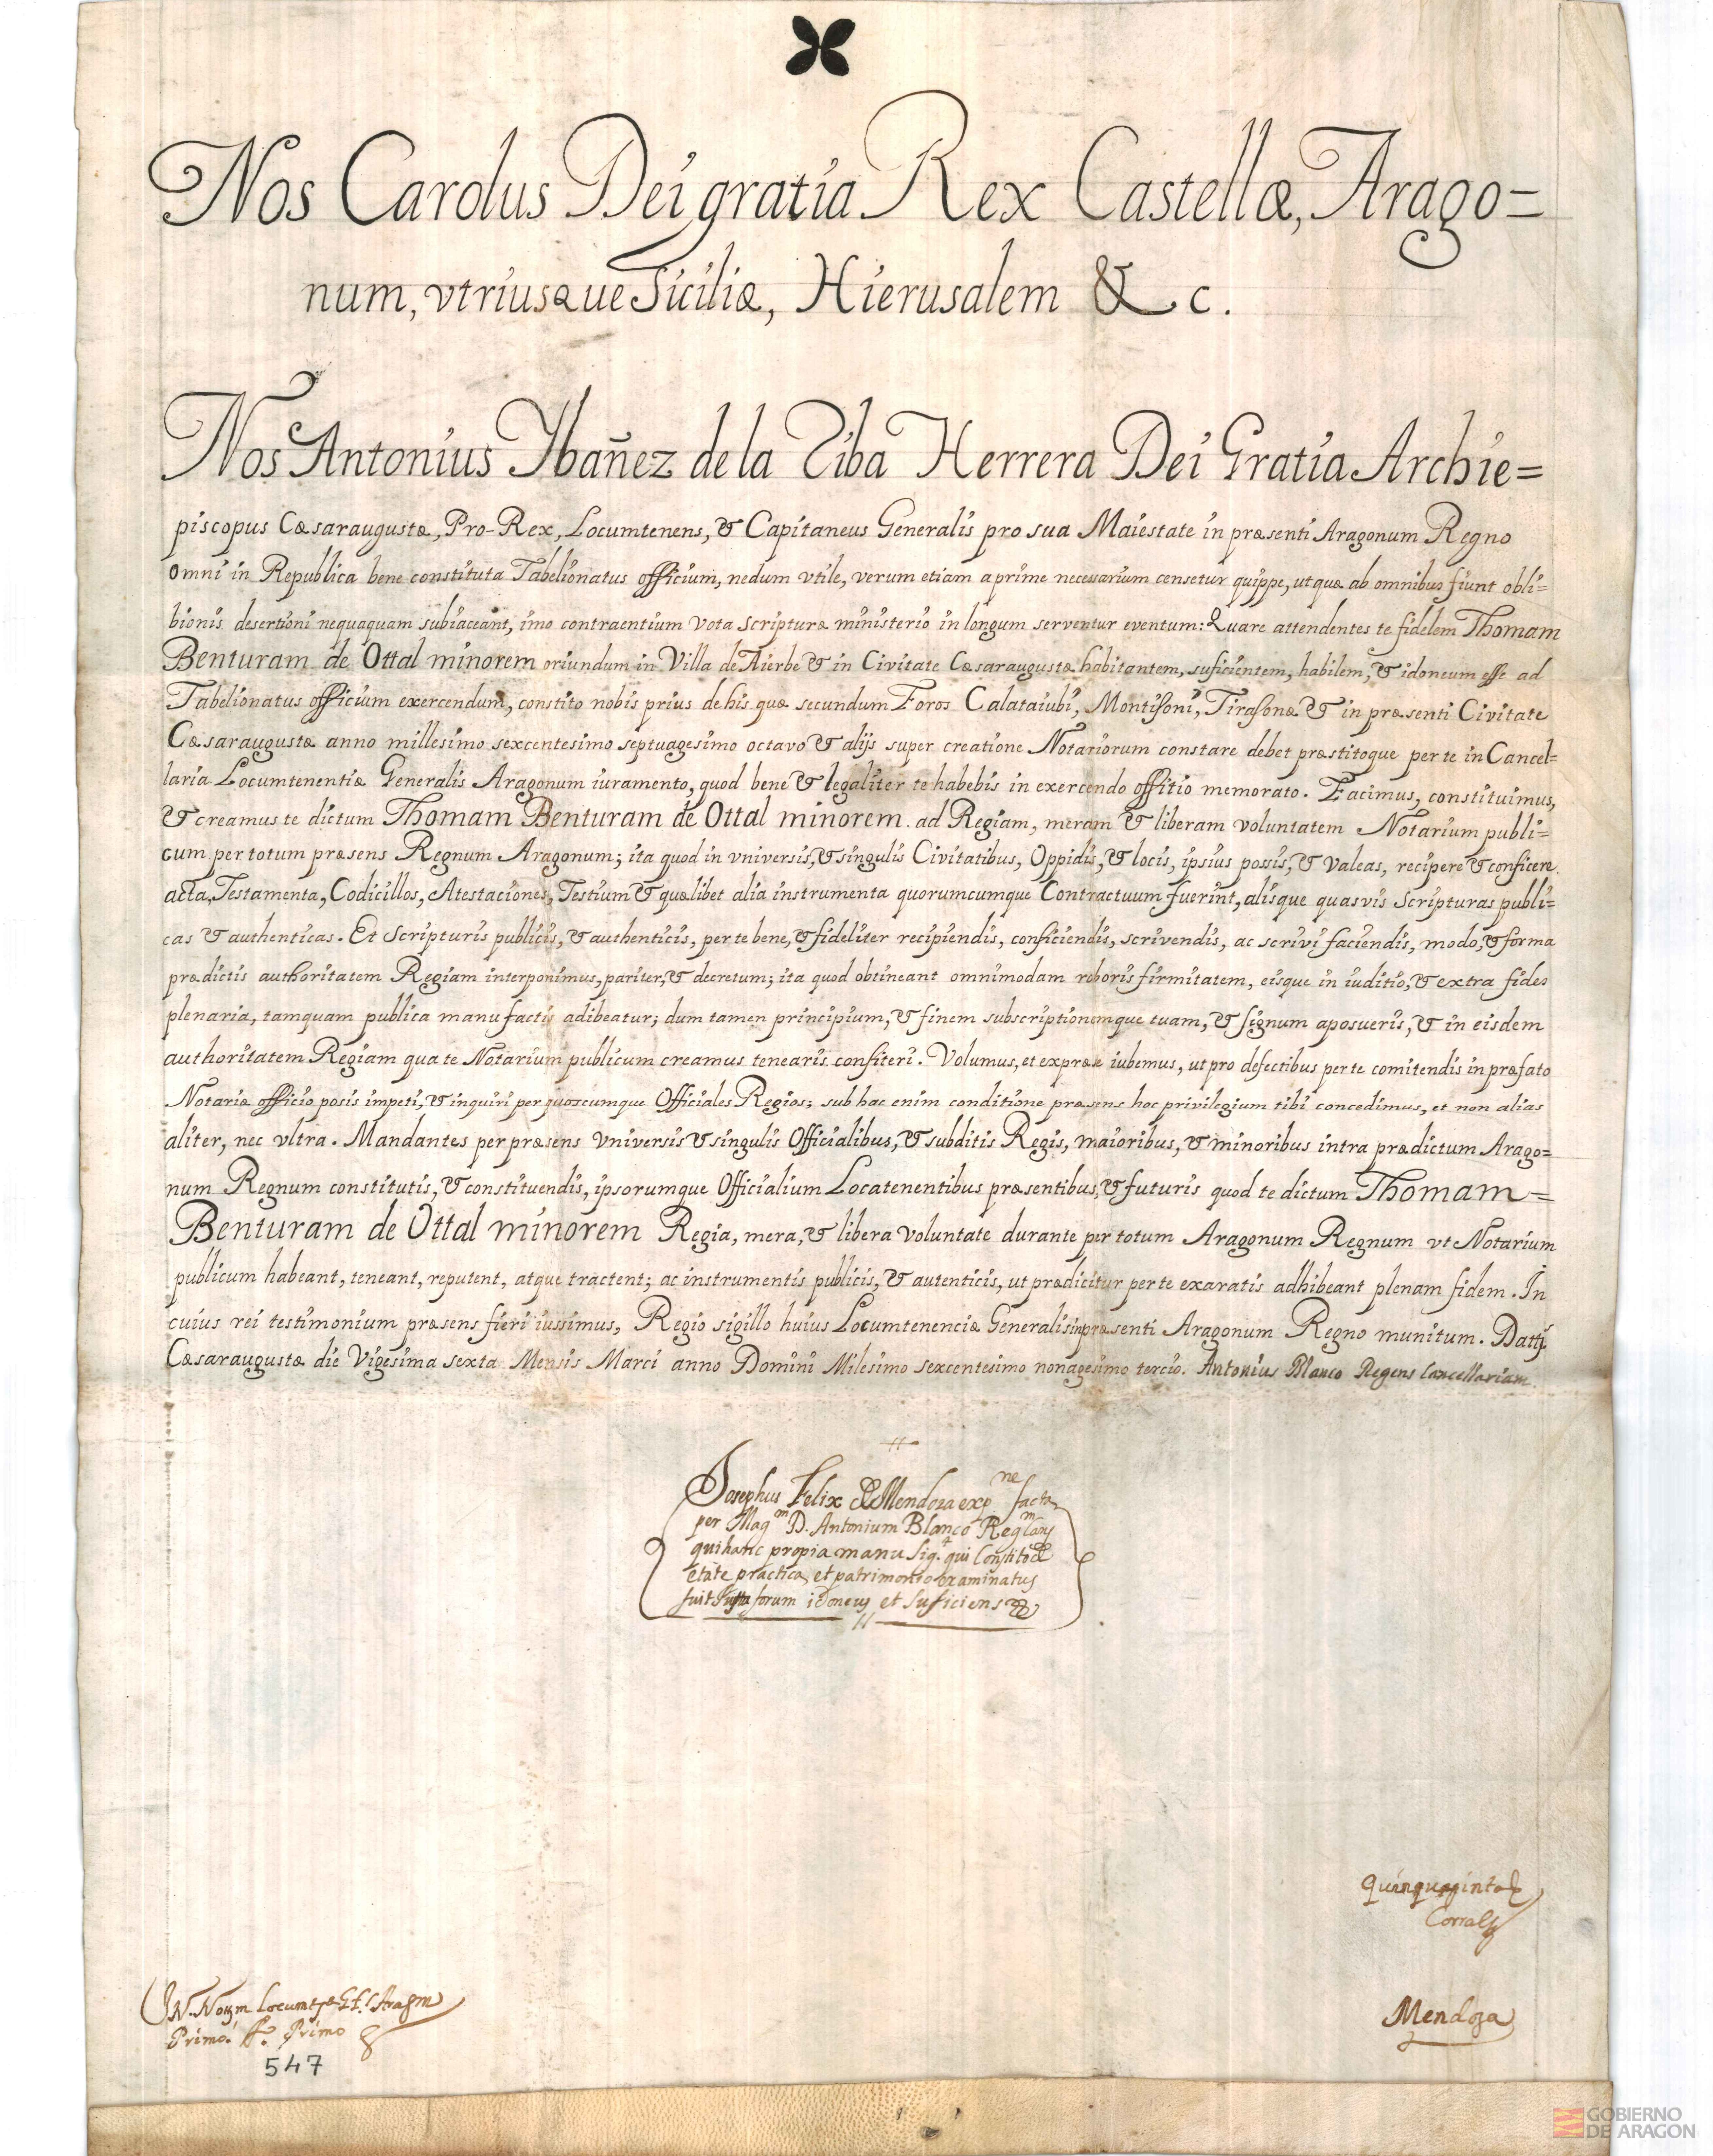 Nos Carolus Dei gratia Rex Castellæ, Arago=
num, vtriusque Siciliæ, Hierusalem & c.
Nos Antonius Ybañez de la Riba Herrera Dei Gratia Archie=
piscopus Cæsaraugustæ, Pro-Rex, Locumtenens, & Capitaneus Generalis pro sua Maiestate in præsenti Aragonum Regno
omni in Republica bene constituta Tabelionatus officium, nedum vtile, verum etiam aprime necessarium censetur quippe, ut quæ ab omnibus fiunt obli=
bionis desertioni nequaquam subiaceant, imo contraentium vota scripturæ ministerio in longum serventur eventum: Quare attendentes te fidelem Thomam
Benturam de Ottal minorem oriundum in Villa de Aierbe & in Civitate Cæsaraugustæ habitantem, suficientem, habilem, & idoneum esse ad
Tabelionatus officium exercendum, constito nobis prius de his quæ secundum Foros Calataiubi, Montissoni, Tirasonæ & in præsenti Civitate
Cæsaraugustæ anno millesimo sexcentesimo septuagesimo octavo & alijs super creatione Notariorum constare debet præstitoque per te in Cancel=
laria Locumtenentiæ Generalis Aragonum iuramento, quod bene & legaliter te habebis in exercendo offitio memorato. Facimus, constituimus,
& creamus te dictum Thomam Benturam de Ottal minorem. ad Regiam, meram & liberam voluntatem Notarium publi=
cum per totum præsens Regnum Aragonum; ita quod in vniversis, & singulis Civitatibus, Oppidis, & locis, ipsius possis, & valeas, recipere & conficere.
acta, Testamenta, Codicillos, Atestaciones, Testium & quælibet alia instrumenta quorumcumque Contractuum fuerint, alisque quasvis Scripturas publi=
cas & authenticas. Et Scripturis publicis, & authenticis, per te bene, & fideliter recipiendis, conficiendis, scrivendis, ac scrivi faciendis, modo, & forma
prædictis authoritatem Regiam interponimus, pariter, & decretum; ita quod obtineant omnimodam roboris firmitatem, eisque in iuditio, & extra fides
plenaria, tamquam publica manu factis adibeatur; dum tamen principium, & finem subscriptionemque tuam, & signum aposueris, & in eisdem
authoritatem Regiam qua te Notarium publicum creamus tenearis confiteri. Volumus, et expræse iubemus, ut pro defectibus per te comitendis in præfato
Notariæ officio posis impeti, & inquiri per quoscumque Officiales Regios; sub hac enim conditione præsens hoc privilegium tibi concedimus, et non alias
aliter, nec vltra. Mandantes per præsens vniversis & singulis Officialibus, & subditis Regis, maioribus, & minoribus intra prædictum Arago=
num Regnum constitutis, & constituendis, ipsorumque Officialium Locatenentibus præsentibus, & futuris quod te dictum Thomam=
Benturam de Ottal minorem Regia, mera, & libera voluntate durante per totum Aragonum Regnum vt Notarium
publicum habeant, teneant, reputent, atque tractent; ac instrumentis publicis, & autenticis, ut prædicitur per te exaratis adhibeant plenam fidem. In
cuius rei testimonium præsens fieri iussimus, Regio sigillo huius Locumtenenciæ Generalis in præsenti Aragonum Regno munitum. Datt
Cæsaraugustæ die Vigesima sexta Mensis Marci anno Domini Milesimo sexcentesimo nonagesimo tercio. Antonius Blanco Regens Cancellariam
Josephus Felix de Mendoza exp ne facta
per Mag m D. Antonium Blanco Reg m
qui hanc propia manu Sig t qui Constito de
etate practica, et patrimonio examinatus
fuit Juxta forum idoneus et Suficiens
Quinquaginta
Corral
Mendoza
Primo. Primo
547
GOBIERNO
DE ARAGON